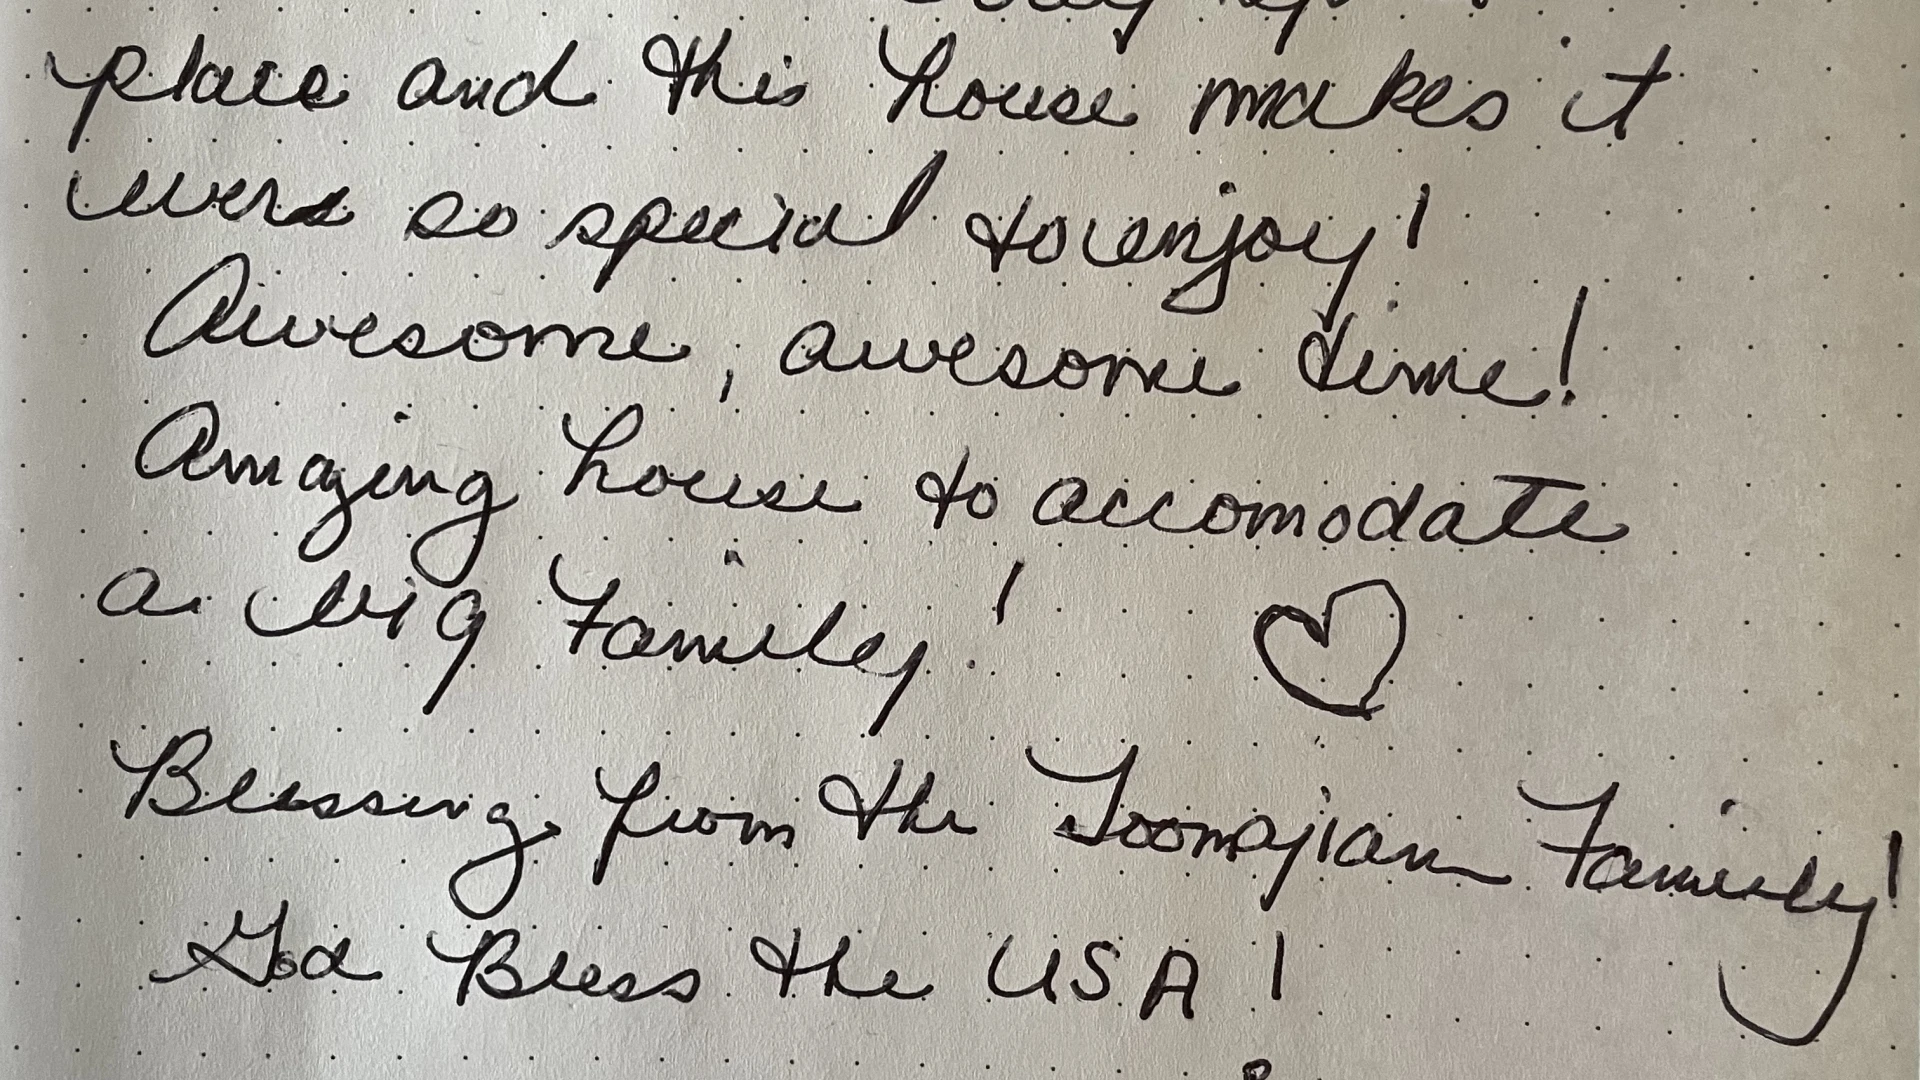 place and this house makes it
so special to enjoy!
Awesome, awesome time!
Amazing house to accomodate
a big Family!
Blessing from the Toomajian Family!
God Bless the USA!